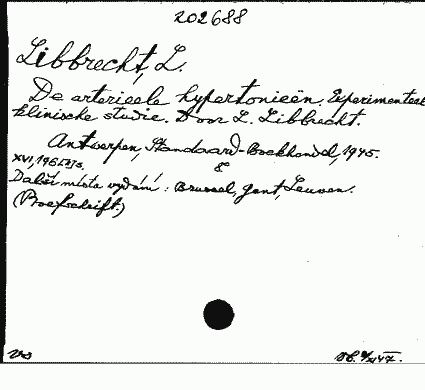 202688
Libbrecht, L.
De arterieele hypertonieën. Experimenteel
klinische studie. Door L. Libbrecht.
Antwerpen, Standaard-Boekhandel, 1945.
8
XVI, 196 s.
Další místa vydání: Brussel, Gent, Leuven.
(Proefschrift.)